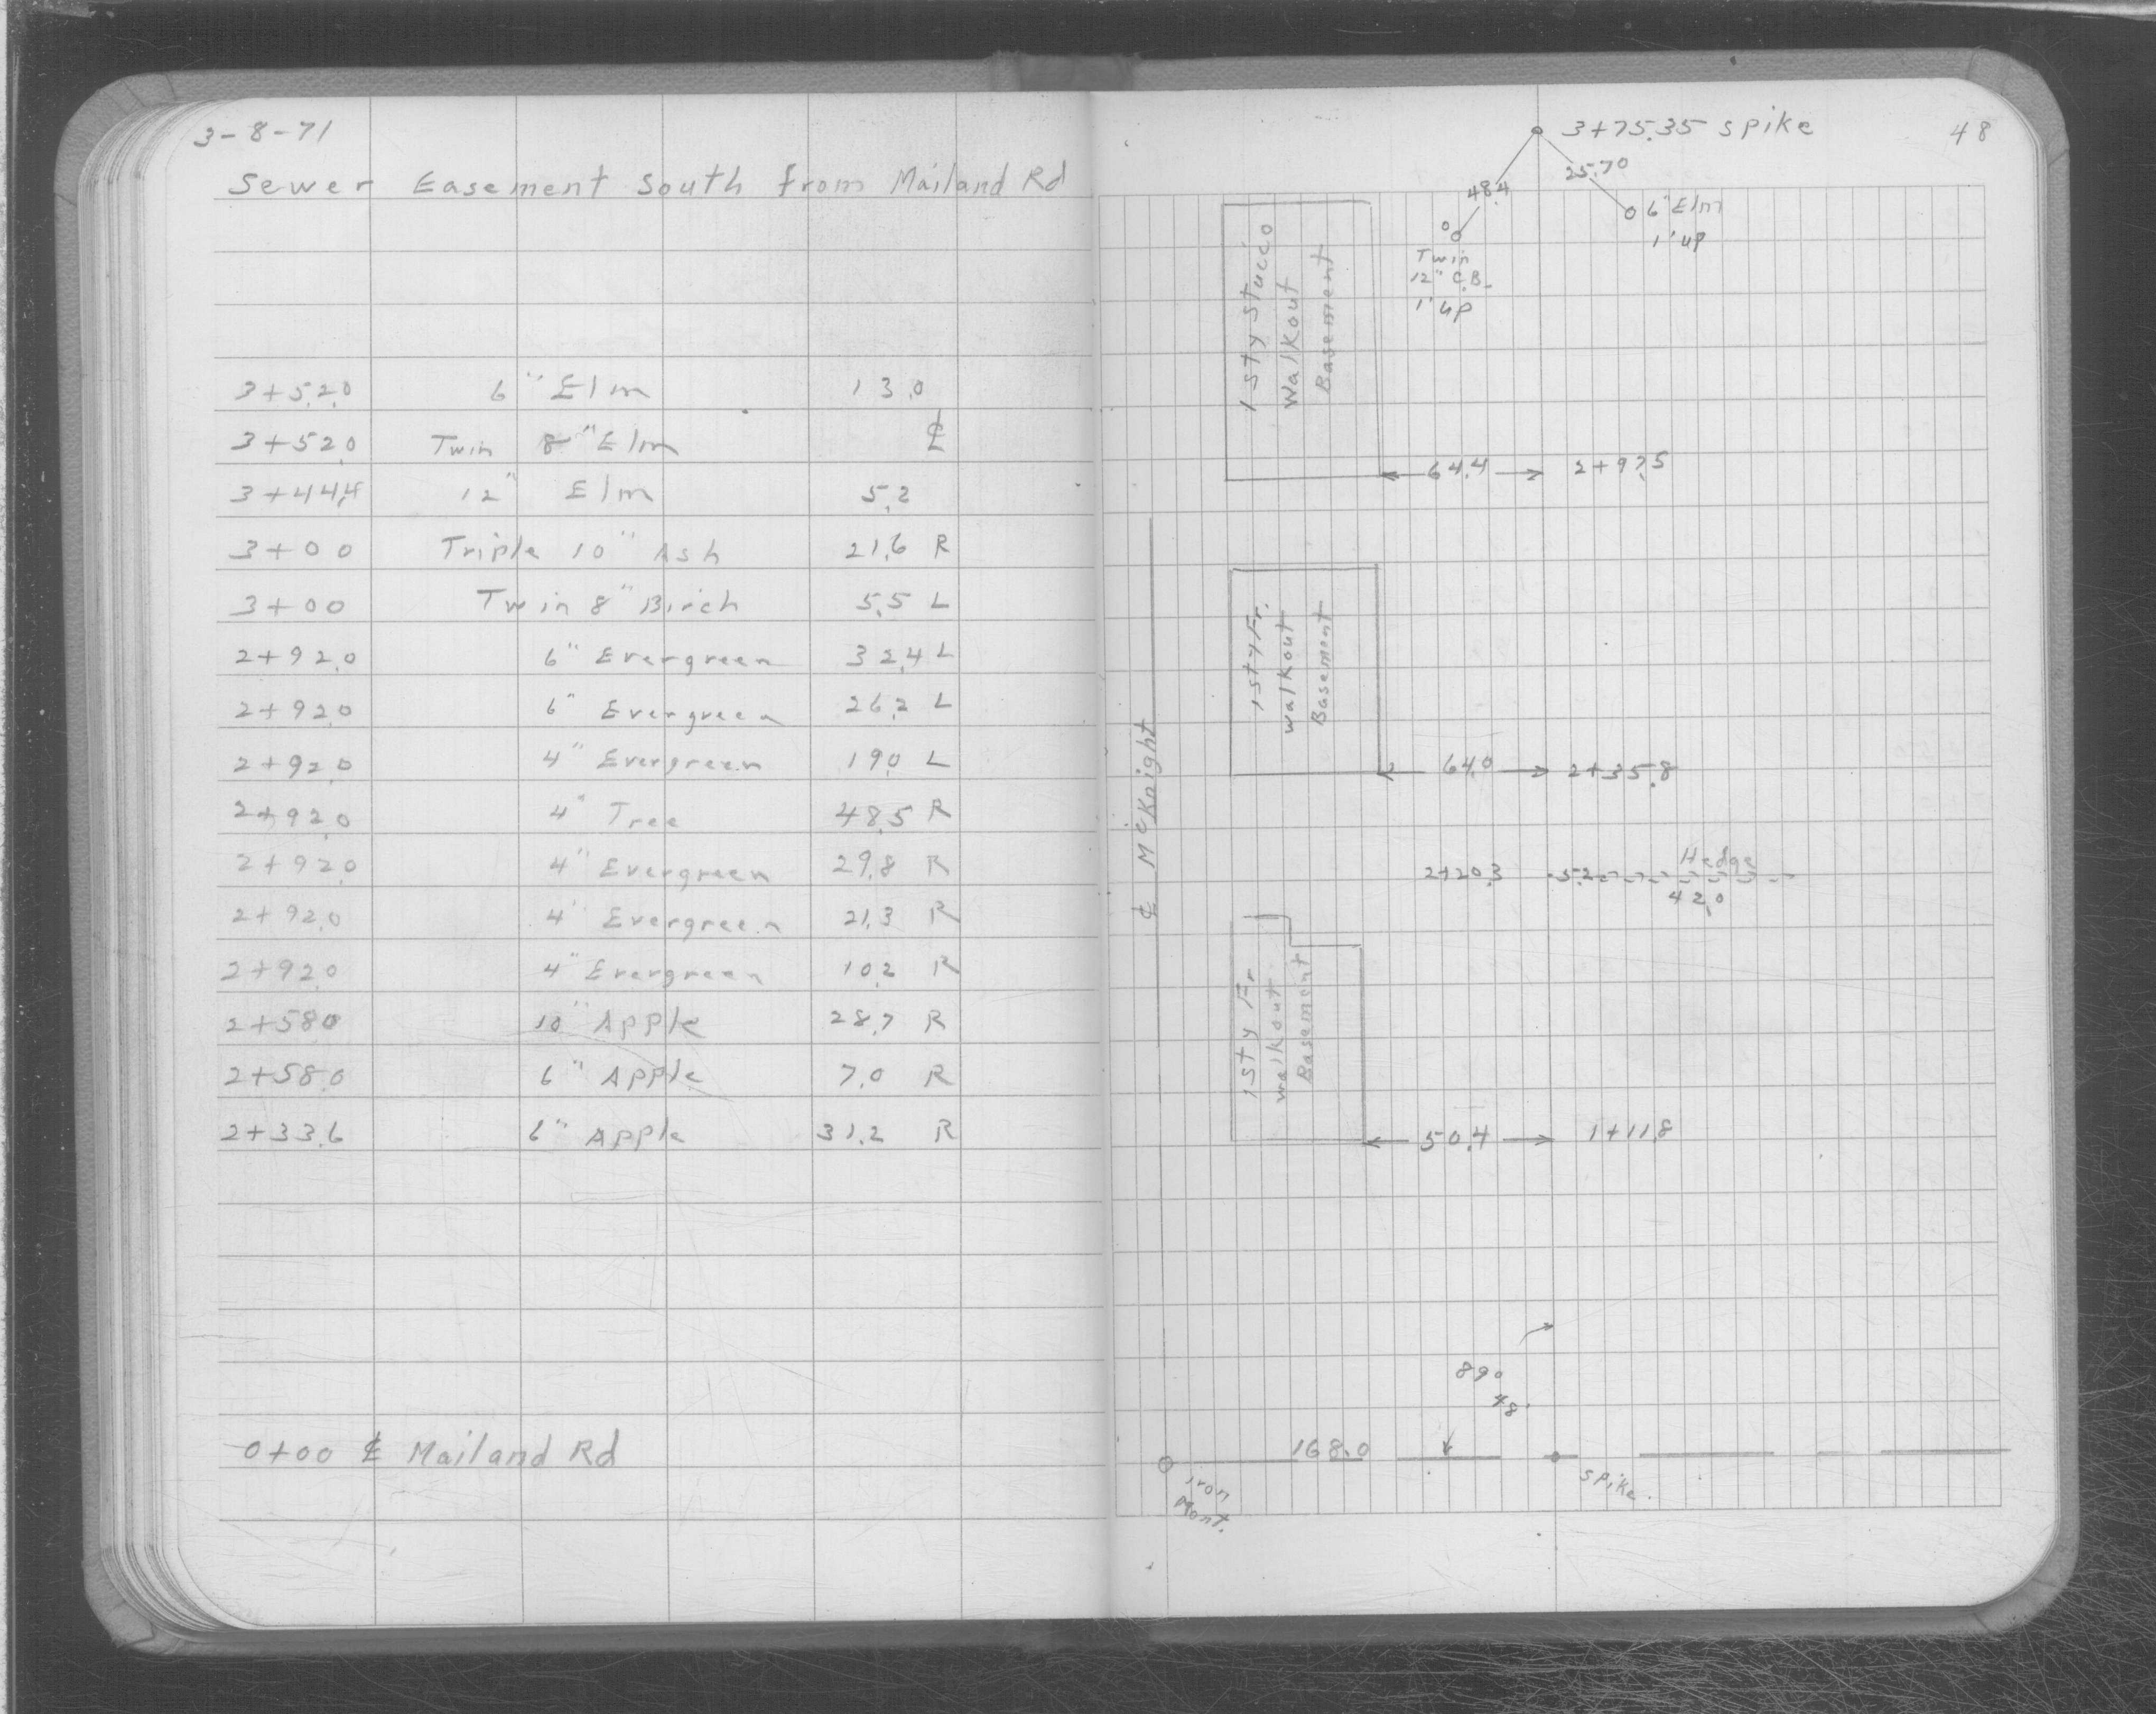 3-8-71
Sewer Easement South from Mailand Rd
3+52.0 6" Elm 13.0
3+52.0 Twin 8" Elm ℄
3+44.4 12" Elm 5.2
3+00 Triple 10" Ash 21.6 R
3+00 Twin 8" Birch 5.5 L
2+92.0 6" Evergreen 32.4 L
2+92.0 6" Evergreen 26.2 L
2+92.0 4" Evergreen 19.0 L
2+92.0 4" Tree 48.5 R
2+92.0 4" Evergreen 29.8 R
2+92.0 4" Evergreen 21.3 R
2+92.0 4" Evergreen 10.2 R
2+58.0 10" Apple 28.7 R
2+58.0 6" Apple 7.0 R
2+33.6 6" Apple 31.2 R
0+00 ℄ Mailand Rd
48
3+75.35 spike
25.70
48.4
6" Elm
1' up
Twin
12" C.B.
1' up
1 sty stucco
Walkout
Basement
64.4 2+97.5
1 sty Fr.
walkout
Basement
64.0 2+35.8
℄ McKnight
Hedge
2+20.3 5.2
42.0
1 sty Fr
walkout
Basement
50.4 1+11.8
89°
48'
168.0
Iron
Mont.
spike.